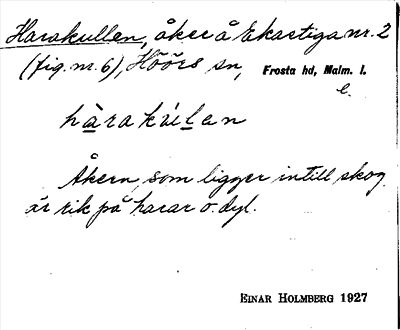 Harakullen, åker å Ekastiga nr. 2
(fig. nr. 6), Höörs sn, Frosta hd, Malm. l.
e.
hàrakúlen
Åkern, som ligger intill skog,
är rik på harar o. dyl.
EINAR HOLMBERG 1927